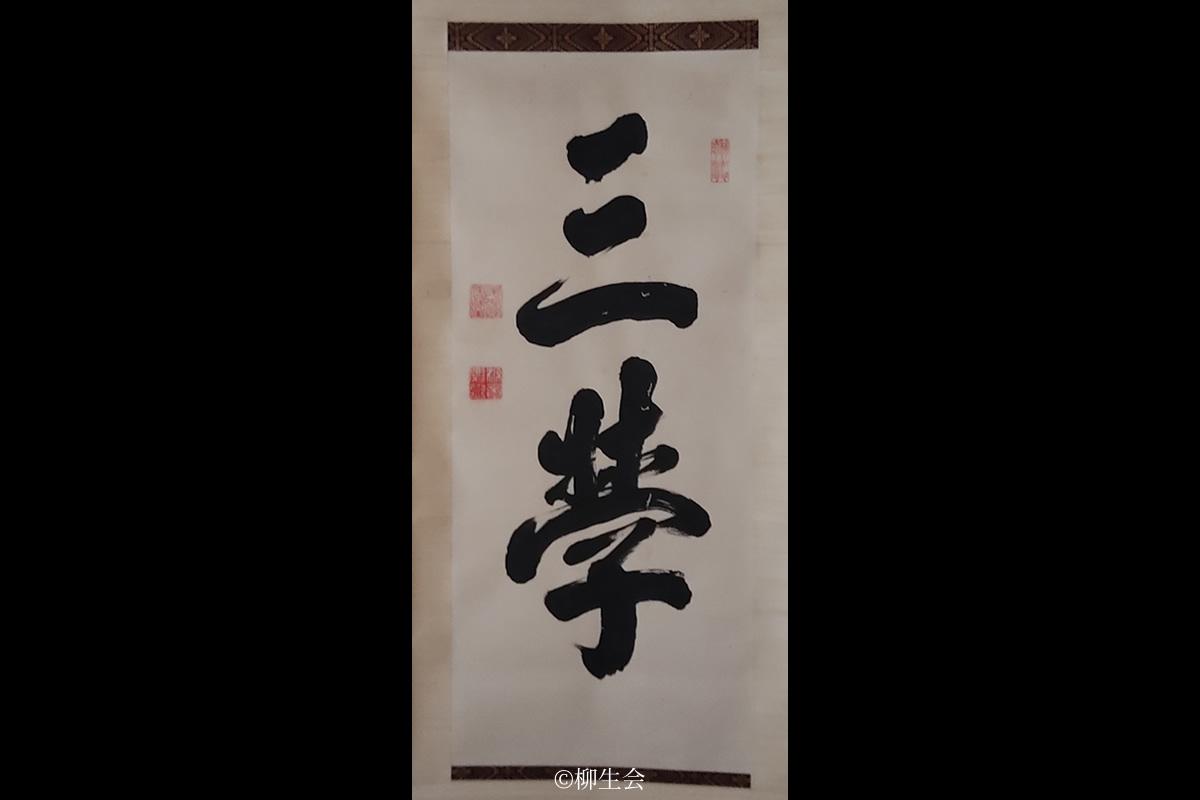 三學
©柳生会